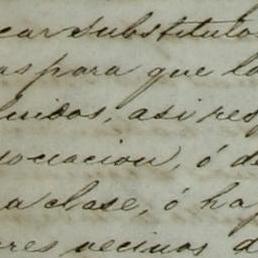 car substituto
as para que lo
luidos, asi res
sociacion, ó de
a clase, ó ha
res vecinos d